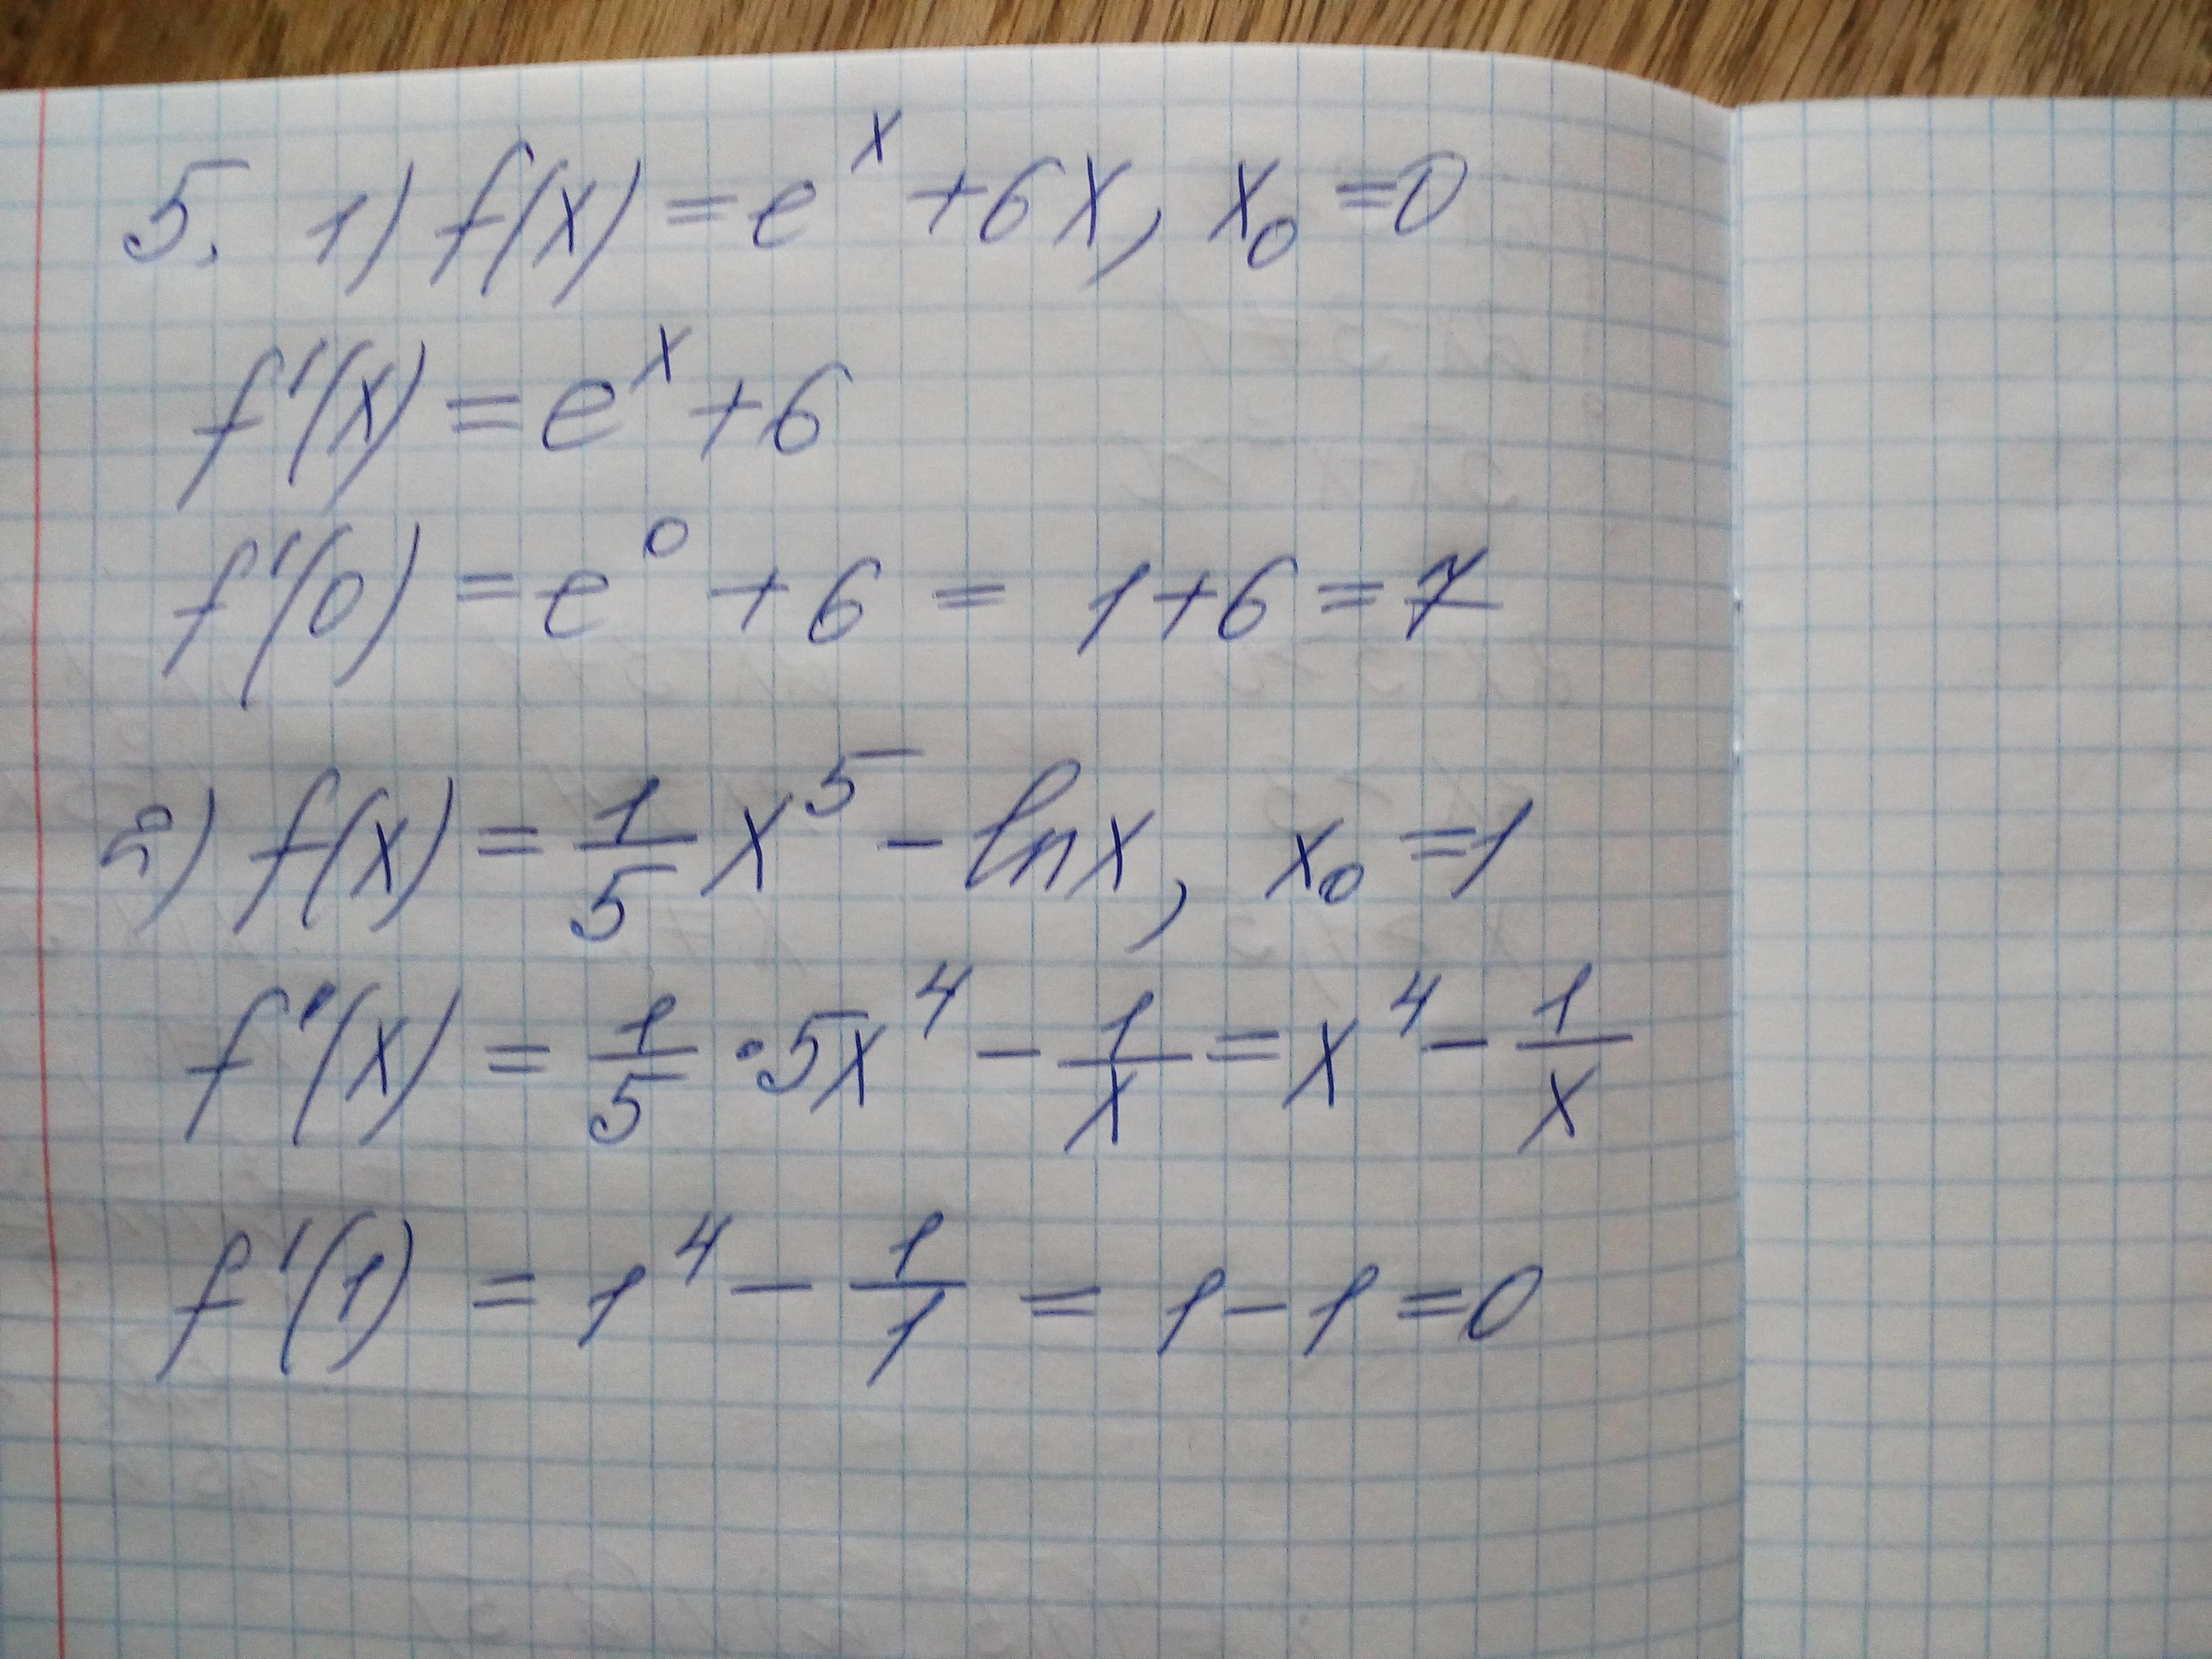 5. 1) f(x) = e^x + 6x, x₀ = 0
f'(x) = e^x + 6
f'(0) = e^0 + 6 = 1 + 6 = 7
2) f(x) = 1/5 x^5 - ln x, x₀ = 1
f'(x) = 1/5 · 5x^4 - 1/x = x^4 - 1/x
f'(1) = 1^4 - 1/1 = 1 - 1 = 0